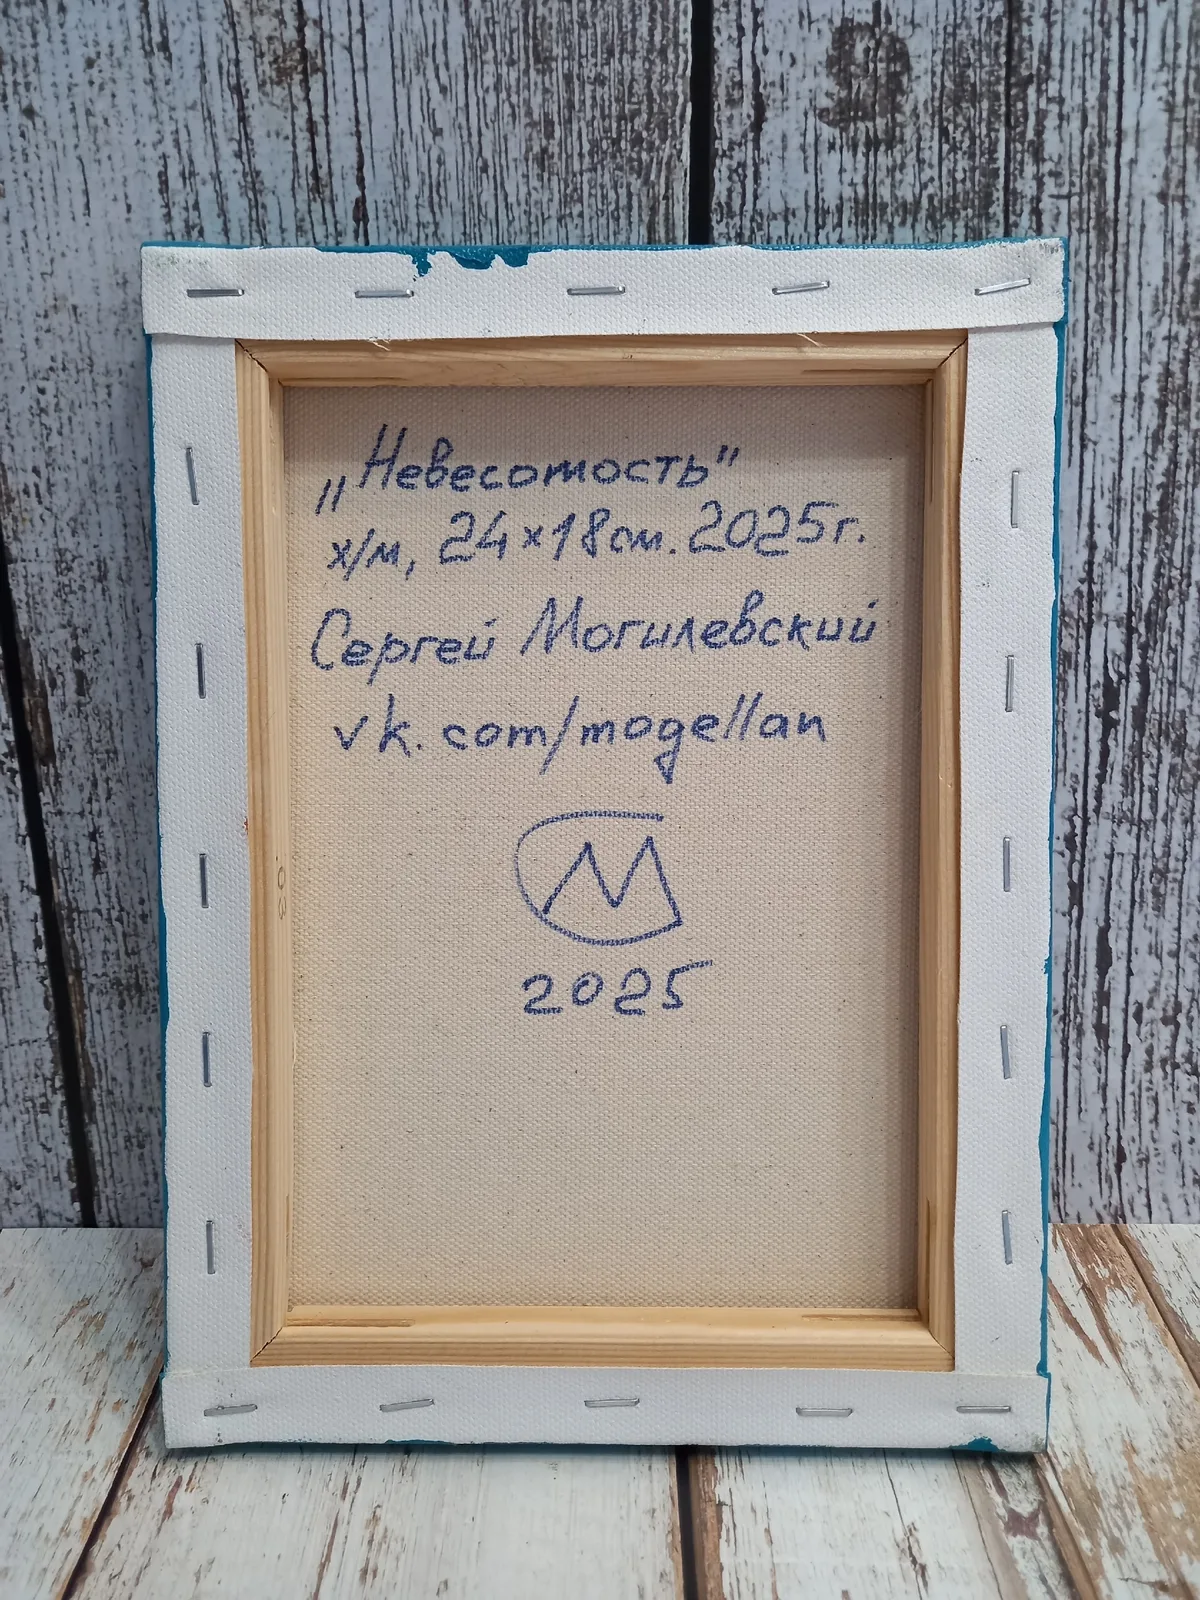 „Невесомость"
х/м, 24×18см. 2025г.
Сергей Могилевский
vk.com/mogellan
СМ
2025
03